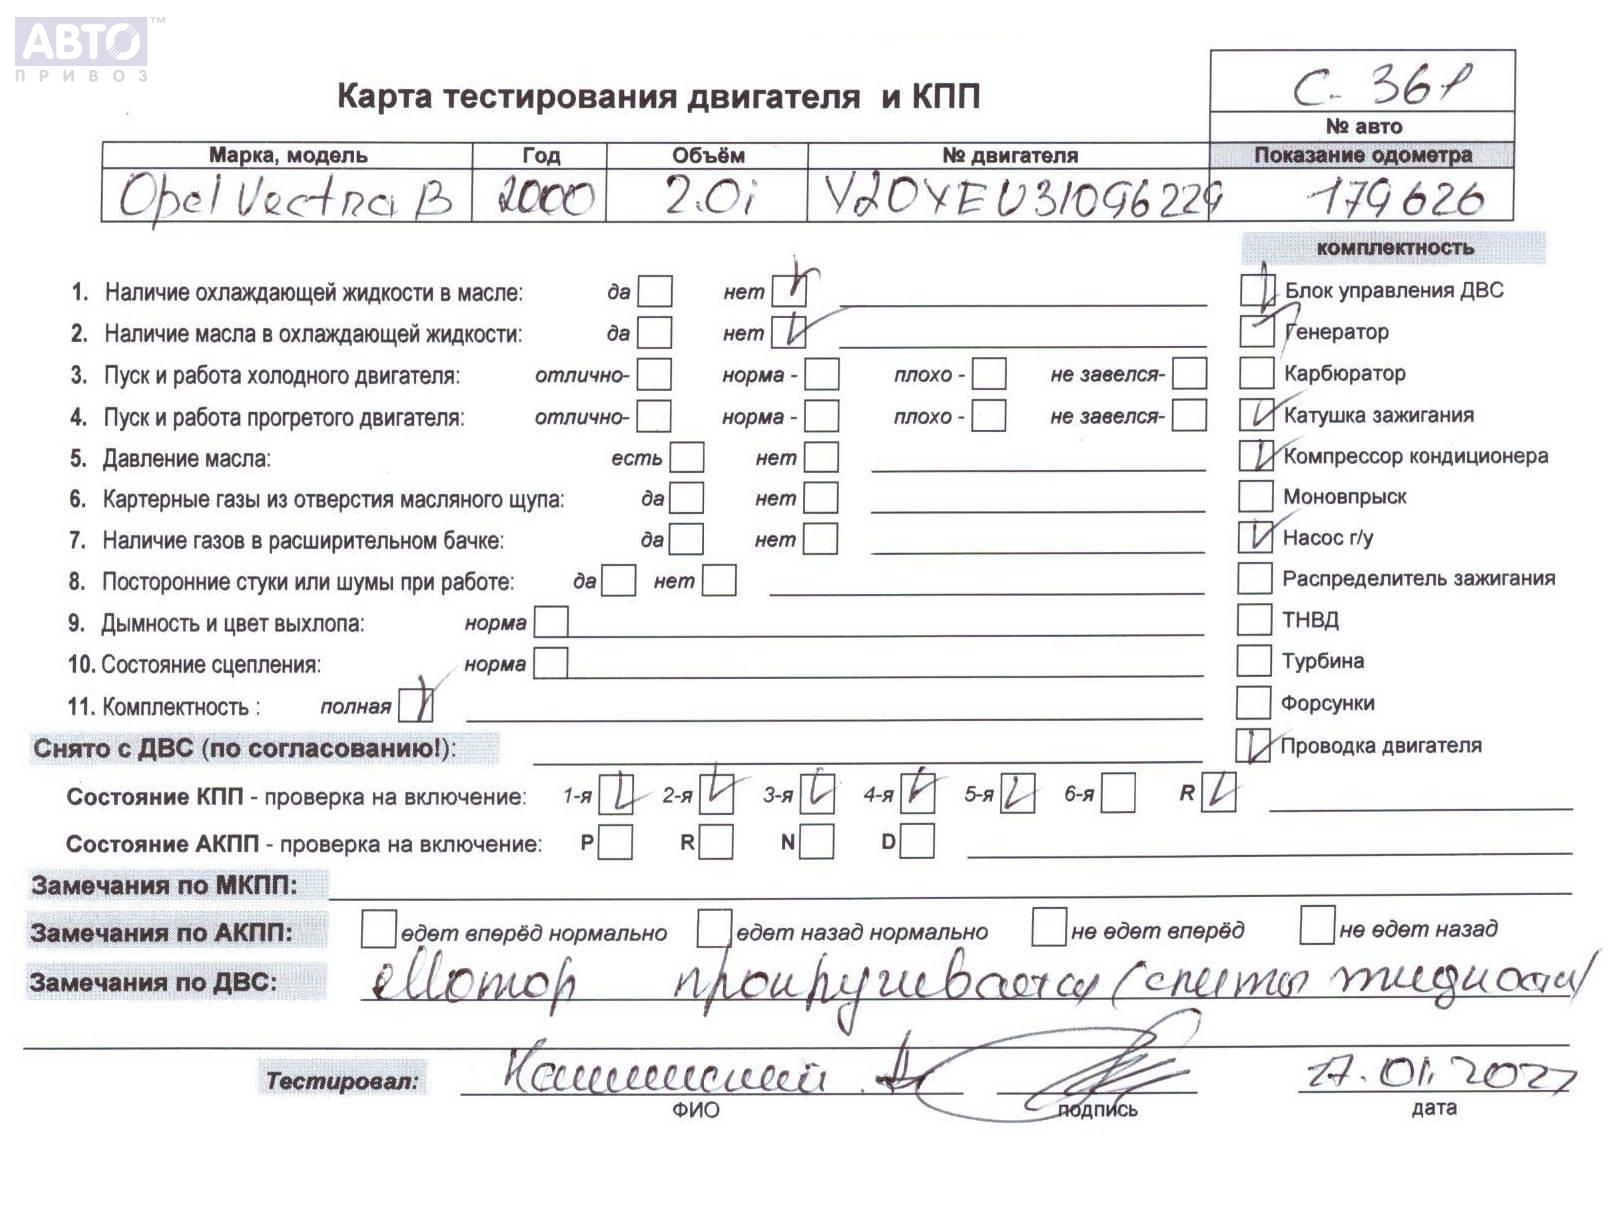 АВТО™
ПРИВОЗ
Карта тестирования двигателя и КПП
С. 361
№ авто
Марка, модель Год Объём № двигателя Показание одометра
Opel Vectra B 2000 2.0i 179626
комплектность
1. Наличие охлаждающей жидкости в масле: да нет Блок управления ДВС
2. Наличие масла в охлаждающей жидкости: да нет Генератор
3. Пуск и работа холодного двигателя: отлично- норма - плохо - не завелся- Карбюратор
4. Пуск и работа прогретого двигателя: отлично- норма - плохо - не завелся- Катушка зажигания
5. Давление масла: есть нет Компрессор кондиционера
6. Картерные газы из отверстия масляного щупа: да нет Моновпрыск
7. Наличие газов в расширительном бачке: да нет Насос г/у
8. Посторонние стуки или шумы при работе: да нет Распределитель зажигания
9. Дымность и цвет выхлопа: норма ТНВД
10. Состояние сцепления: норма Турбина
11. Комплектность : полная Форсунки
Снято с ДВС (по согласованию!): Проводка двигателя
Состояние КПП - проверка на включение: 1-я 2-я 3-я 4-я 5-я 6-я R
Состояние АКПП - проверка на включение: P R N D
Замечания по МКПП:
Замечания по АКПП: едет вперёд нормально едет назад нормально не едет вперёд не едет назад
Замечания по ДВС: Мотор прокручивается (слиты жидкости)
Тестировал: 17.01.202
ФИО подпись дата